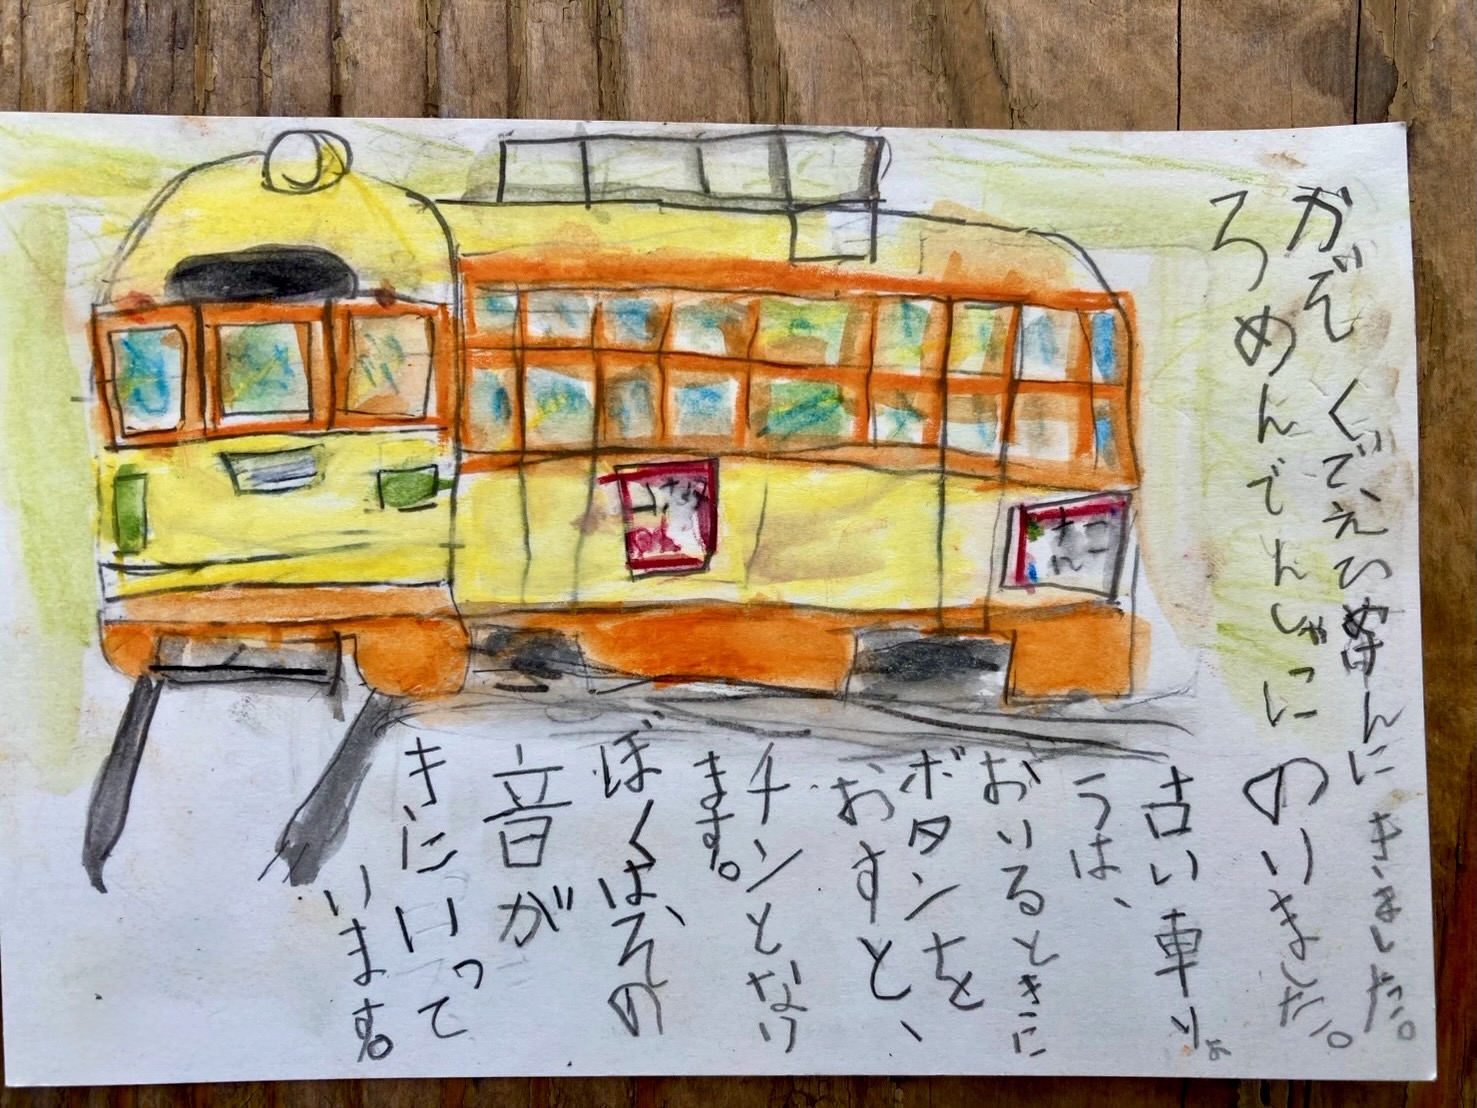 がぞくでえひめけんにきました。
ろめんでんしゃにのりました。
古い車りょ
うは、
おりるときに
ボタンを
おすと、
チンとなり
ます。
ぼくは、その
音が
きにいって
います。